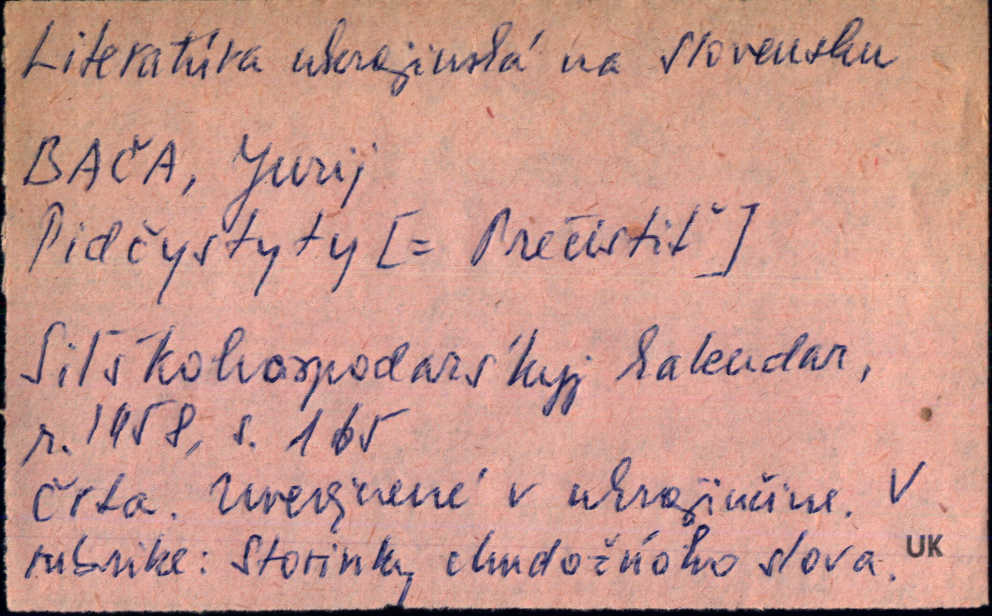 Literatúra ukrajinská na Slovensku
BAČA, Jurij
Pidčystyty [= Prečistiť]
Siľs'kohospodars'kyj kalendar,
r. 1958, s. 165
Črta. Uverejnené v ukrajinčine. V
rubrike: Storinky chudožňoho slova.
UK